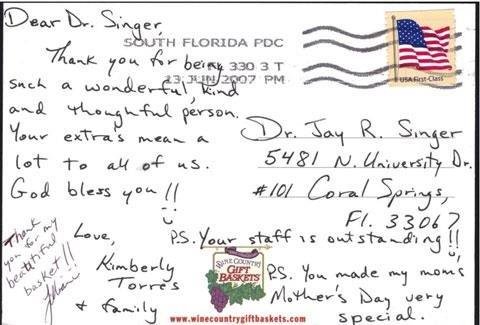 Dear Dr. Singer,
SOUTH FLORIDA PDC
Thank you for being
330 3 T
such a wonderful, kind
13 JUN 2007 PM
and thoughtful person.
Your extra's mean a
lot to all of us.
God bless you!!
Love,
Kimberly
Torres
& family
Thank
you for my
beatutiful
basket!!
USA First-Class
Dr. Jay R. Singer
5481 N. University Dr.
#101 Coral Springs,
Fl. 33067
P.S. Your staff is outstanding!!
P.S. You made my mom's
Mother's Day very
special.
WINE COUNTRY
GIFT
BASKETS
www.winecountrygiftbaskets.com